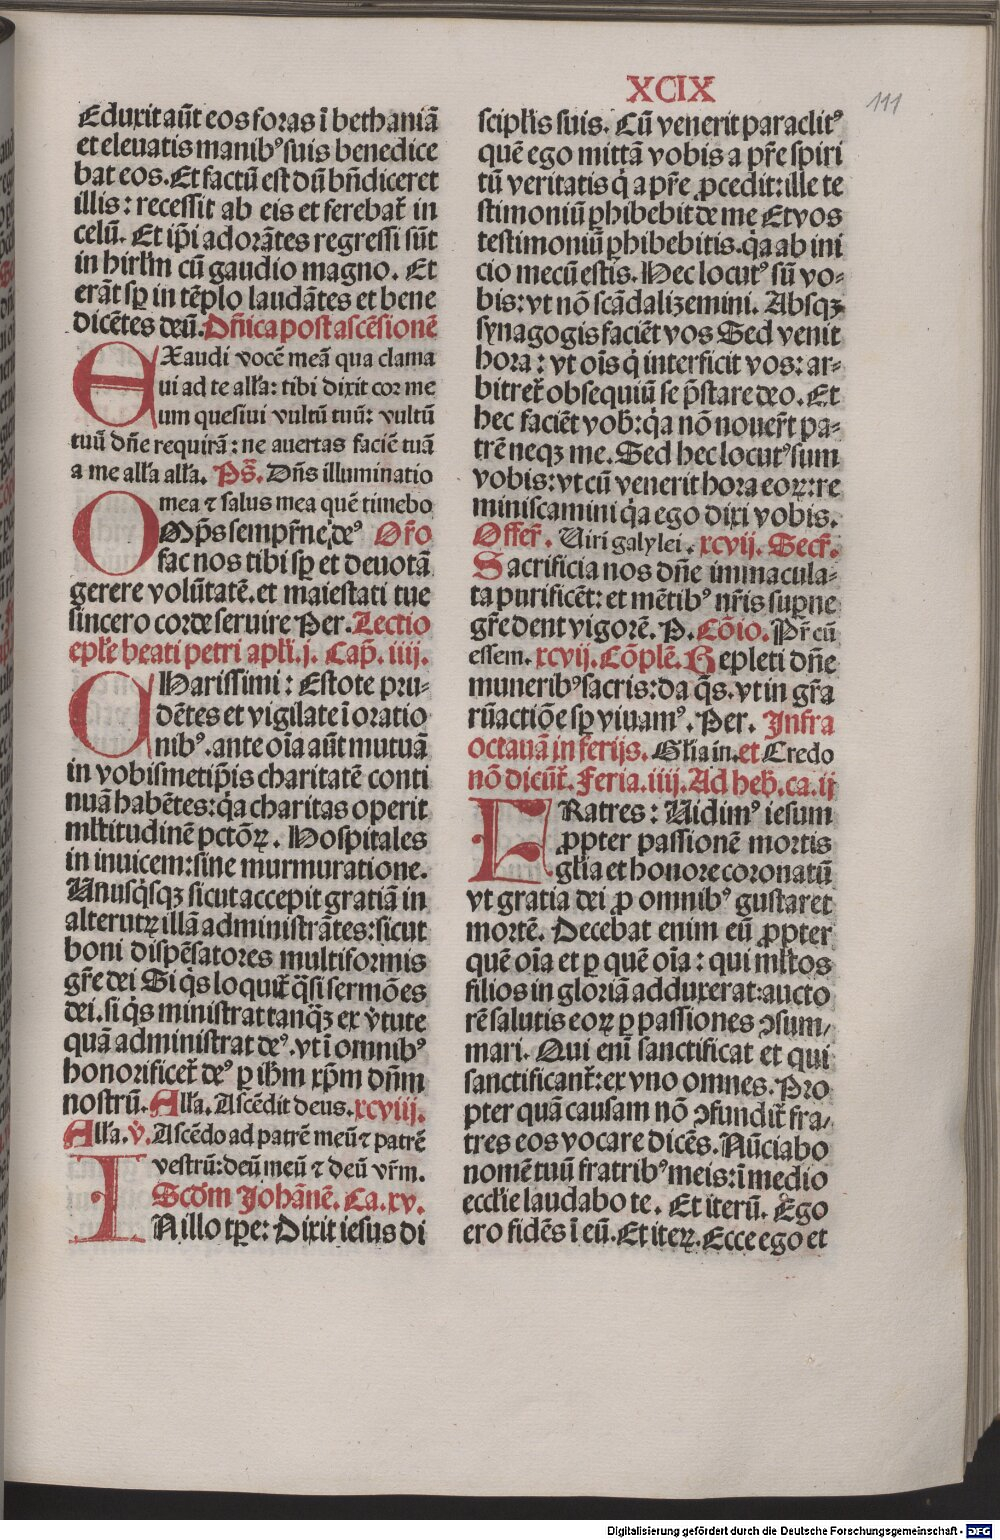 XCIX
111
Eduxit aūt eos foras ī bethaniā
et eleuatis manibꝰ suis benedice
bat eos. Et factū est dū bn̄diceret
illis: recessit ab eis et ferebat᷑ in
celū. Et ip̄i adorātes regressi sūt
in hirlm̄ cū gaudio magno. Et
erāt sꝑ in tēplo laudātes et bene
dicētes deū. Dn̄ica post ascēsionē
EXaudi vocē meā qua clama
ui ad te all'a: tibi dixit cor me
um quesiui vultū tuū: vultū
tuū dn̄e requirā: ne auertas faciē tuā
a me all'a all'a. Ps̄. Dn̄s illuminatio
mea ⁊ salus mea quē timebo
OMp̄s sempr̄ne deꝰ Or̄o
fac nos tibi sꝑ et deuotā
gerere volūtatē. et maiestati tue
sincero corde seruire Per. Lectio
epl'e beati petri apl'i. j. Cap̄. iiij.
CHarissimi: Estote pru-
dētes et vigilate ī oratio
nibꝰ. ante oīa aūt mutuā
in vobismetip̄is charitatē conti
nuā habētes: q̇a charitas operit
ml'titudinē pctōꝝ. Hospitales
in inuicem: sine murmuratione.
Vnusq̇sqꝫ sicut accepit gratiā in
alterutꝝ illā administrātes: sicut
boni dispēsatores multiformis
gr̄e dei Si q̇s loquit᷑ q̄si sermōes
dei. si q̇s ministrat tanq̄ꝫ ex v̇tute
quā administrat deꝰ. vt ī omnibꝰ
honorificet᷑ deꝰ ꝑ ihm̄ xp̄m dn̄m
nostrū. All'a. Ascēdit deus. xcviij.
All'a. v̇. Ascēdo ad patrē meū ⁊ patrē
vestrū: deū meū ⁊ deū vr̄m.
Scd̄m Johānē. Ca. xv.
IN illo tꝑe: Dixit iesus di
scipl'is suis. Cū venerit paraclitꝰ
quē ego mittā vobis a pr̄e spiri
tū veritatis q̇ a pr̄e ꝓcedit: ille te
stimoniū ꝑhibebit de me Et vos
testimoniū ꝑhibebitis. q̇a ab ini
cio mecū estis. Hec locutꝰ sū vo-
bis: vt nō scādalizemini. Absqꝫ
synagogis faciēt vos Sed venit
hora: vt oīs q̇ interficit vos: ar-
bitret᷑ obsequiū se p̄stare deo. Et
hec faciēt vob᷑: q̇a nō nouer̄t pa-
trē neqꝫ me. Sed hec locutꝰ sum
vobis: vt cū venerit hora eoꝝ: re
miniscamini q̇a ego dixi vobis.
Offer̄. Uiri galylei. xcvij. Secr̄.
Sacrificia nos dn̄e immacula-
ta purificēt: et mētibꝰ nr̄is supne
gr̄e dent vigorē. P. Cōio. Pr̄ cū
essem. xcvij. Cōplē. Repleti dn̄e
muneribꝰ sacris: da q̄s. vt in gr̄a
rū actiōe sꝑ viuamꝰ. Per. Infra
octauā in ferijs. Gl'ia in. et Credo
nō dicūt᷑. Feria. iiij. Ad heb̄. ca. ij
FRatres: Uidimꝰ iesum
ꝓpter passionē mortis
gl'ia et honore coronatū
vt gratia dei ꝓ omnibꝰ gustaret
mortē. Decebat enim eū ꝓpter
quē oīa et ꝑ quē oīa: qui ml'tos
filios in gloriā adduxerat: aucto
rē salutis eoꝝ ꝑ passiones ꝯsum/
mari. Qui enī sanctificat et qui
sanctificant᷑: ex vno omnes. Pro
pter quā causam nō ꝯfundit᷑ fra/
tres eos vocare dicēs. Nūciabo
nomē tuū fratribꝰ meis: ī medio
eccl'ie laudabo te. Et iterū. Ego
ero fidēs ī eū. Et iteꝝ. Ecce ego et
Digitalisierung gefördert durch die Deutsche Forschungsgemeinschaft - DFG